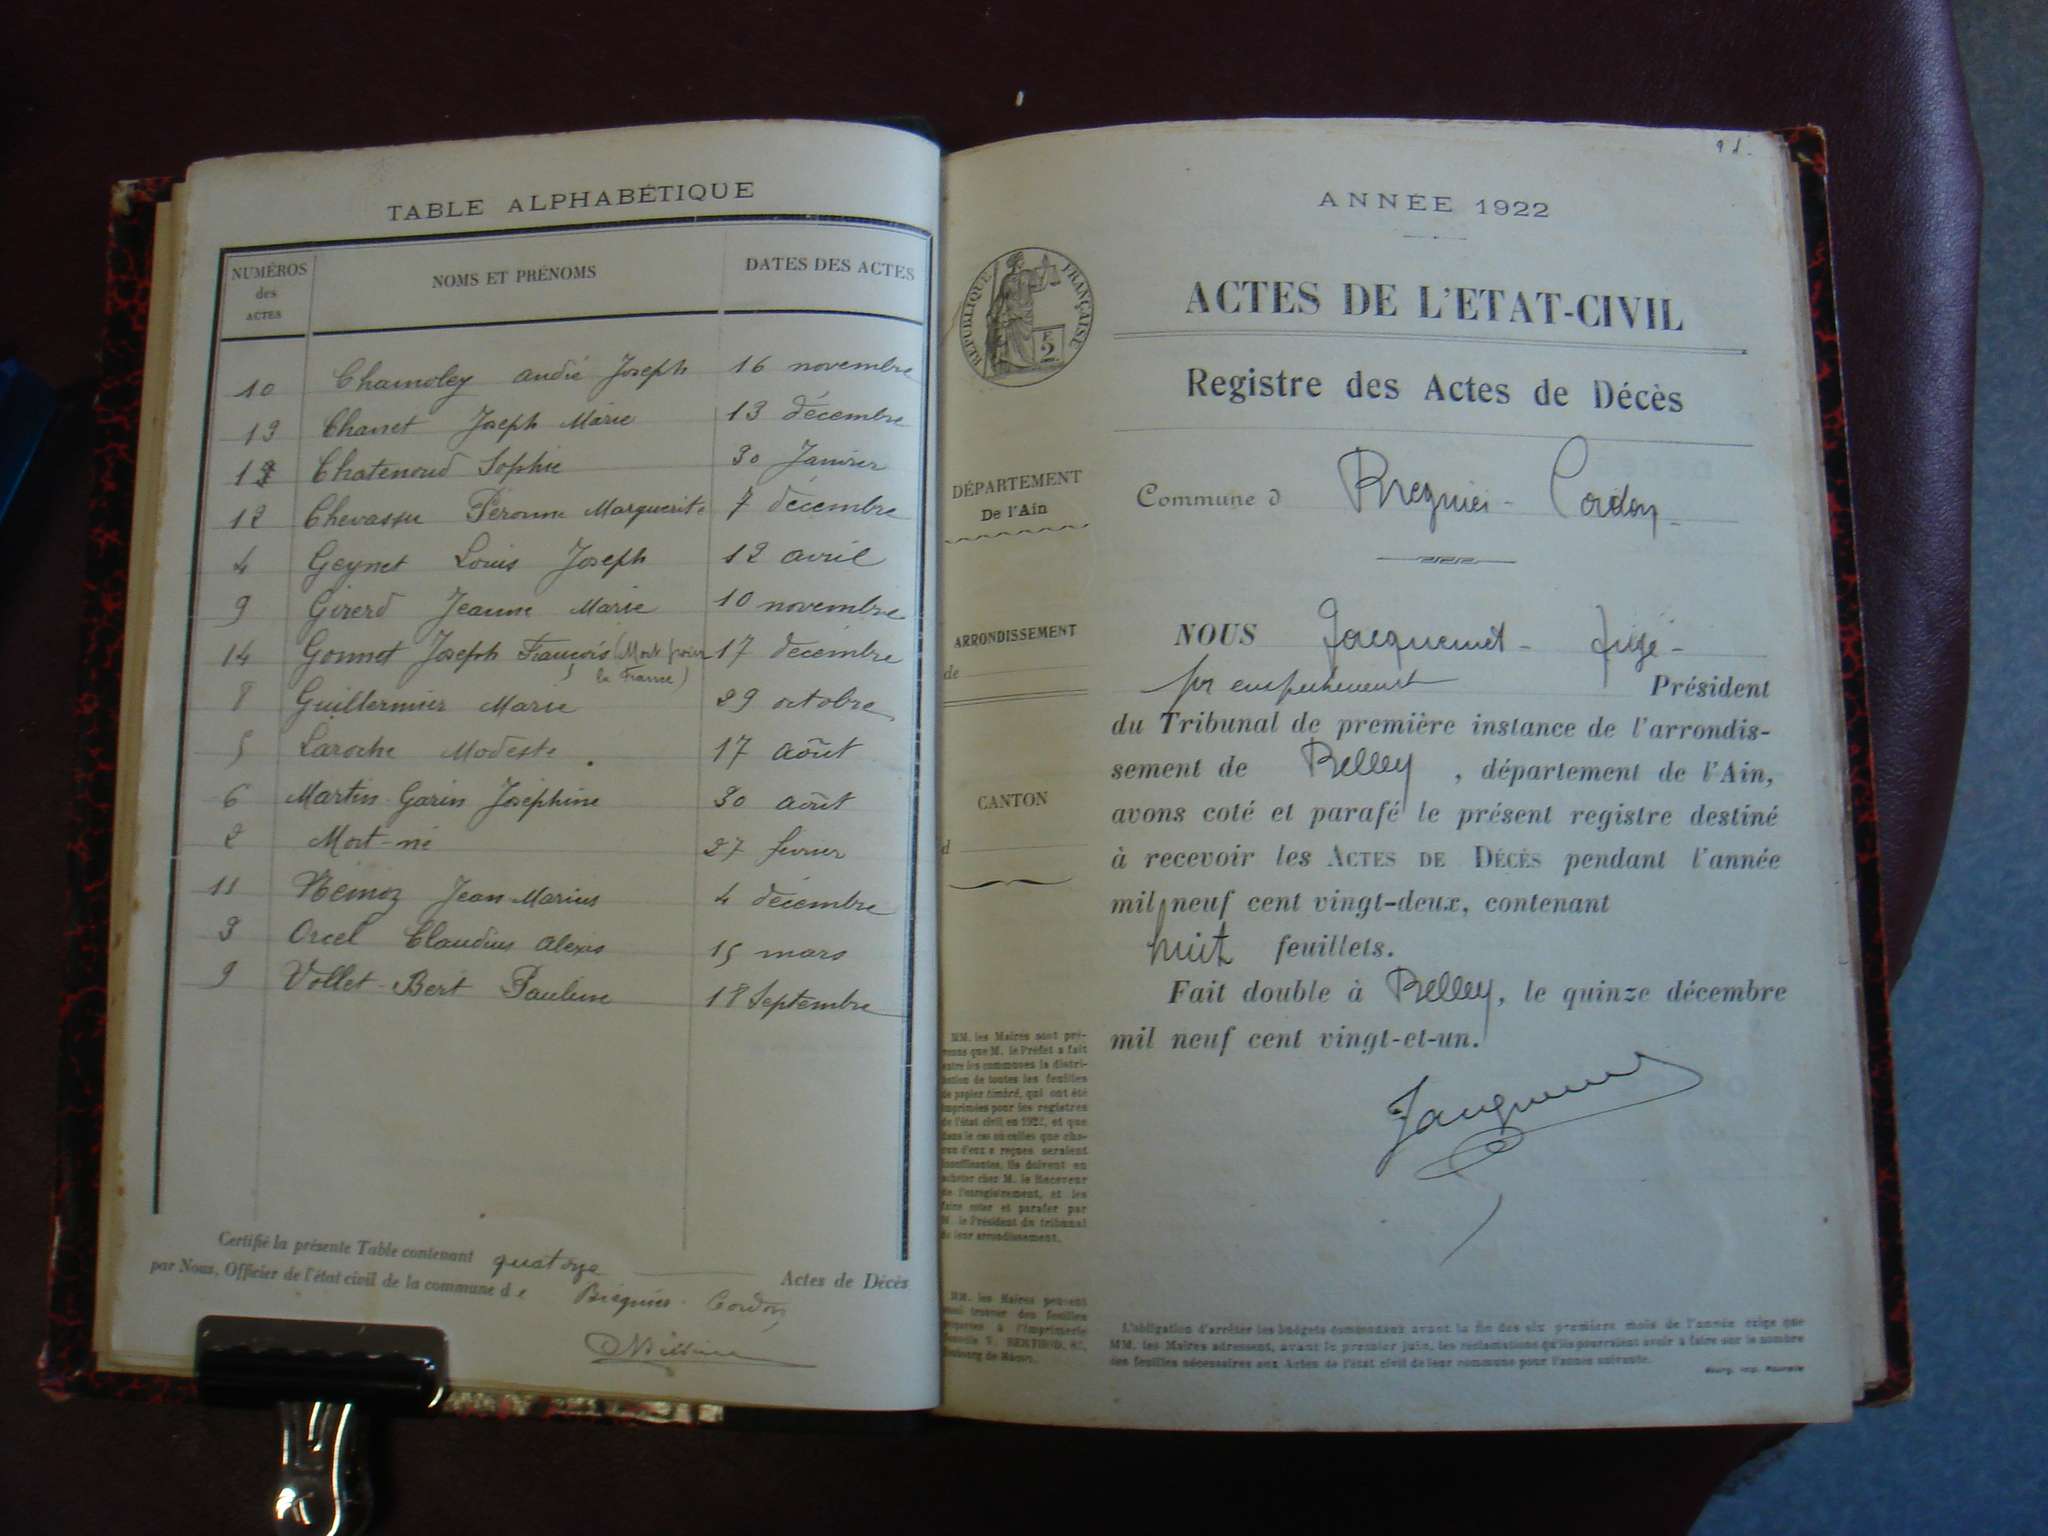 TABLE ALPHABÉTIQUE
NUMÉROS des ACTES
NOMS ET PRÉNOMS
DATES DES ACTES
10 Chamoley andré Joseph 16 novembre
13 Chanet Joseph Marie 13 décembre
1 Chatenoud Sophie 30 Janvier
12 Chevassu Péronne Marguerite 7 décembre
4 Geynet Louis Joseph 12 avril
9 Girerd Jeanne Marie 10 novembre
14 Gonnet Joseph François (Mort pour 17 décembre
la France)
8 Guillermier Marie 29 octobre
5 Laroche Modeste 17 août
6 Martin-Garin Joséphine 30 août
2 Mort-né 27 février
11 Nemoz Jean-Marius 4 décembre
3 Orcel Claudius alexis 15 mars
9 Vollet-Bert Pauline 18 Septembre
Certifié la présente Table contenant quatorze Actes de Décès
par Nous, Officier de l'état civil de la commune de Brégnier-Cordon
ANNÉE 1922
RÉPUBLIQUE FRANÇAISE
ACTES DE L'ETAT-CIVIL
Registre des Actes de Décès
DÉPARTEMENT
De l'Ain
Commune d Bregnier-Cordon
ARRONDISSEMENT
de
CANTON
d
NOUS Jacquemet-juge-
par empechement Président
du Tribunal de première instance de l'arrondis-
sement de Belley, département de l'Ain,
avons coté et parafé le présent registre destiné
à recevoir les ACTES DE DÉCÈS pendant l'année
mil neuf cent vingt-deux, contenant
huit feuillets.
Fait double à Belley, le quinze décembre
mil neuf cent vingt-et-un.
Jacquemet
MM. les Maires sont pré-
venus que M. le Préfet a fait
entre les communes la distri-
bution de toutes les feuilles
de papier timbré, qui ont été
imprimées pour les registres
de l'état civil en 1922, et que
dans le cas où celles que cha-
cun d'eux a reçues seraient
insuffisantes, ils doivent en
acheter chez M. le Receveur
de l'enregistrement, et les
faire coter et parafer par
M. le Président du tribunal
de leur arrondissement.
MM. les Maires peuvent
aussi trouver des feuilles
à l'Imprimerie
L'obligation d'arrêter les budgets communaux avant la fin des six premiers mois de l'année exige que
MM. les Maires adressent, avant le premier juin, les réclamations qu'ils pourraient avoir à faire sur le nombre
des feuilles nécessaires aux Actes de l'état civil de leur commune pour l'année suivante.